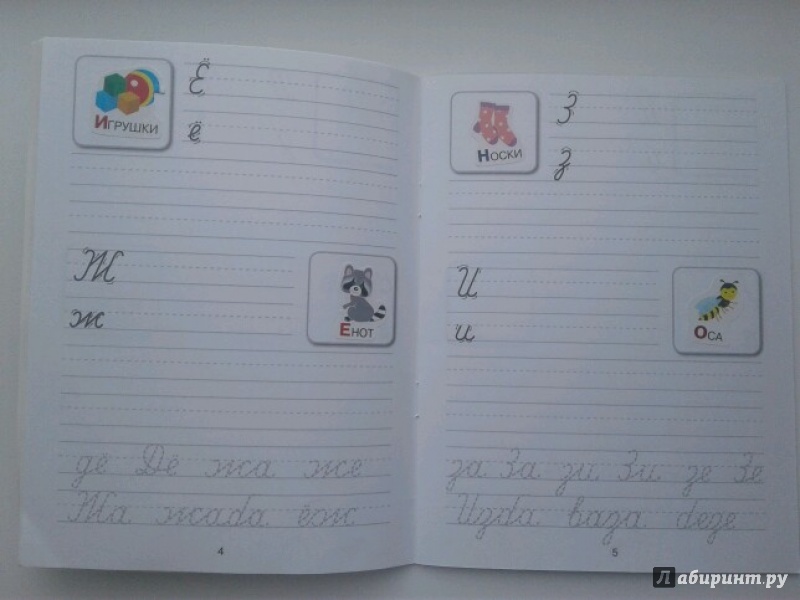 Ё
ё
ИГРУШКИ
Ж
ж
ЕНОТ
дё Дё жа же
Жа жаба ёж
4
З
з
НОСКИ
И
и
ОСА
за За зи Зи зе Зе
Изба ваза безе
5
Лабиринт.ру